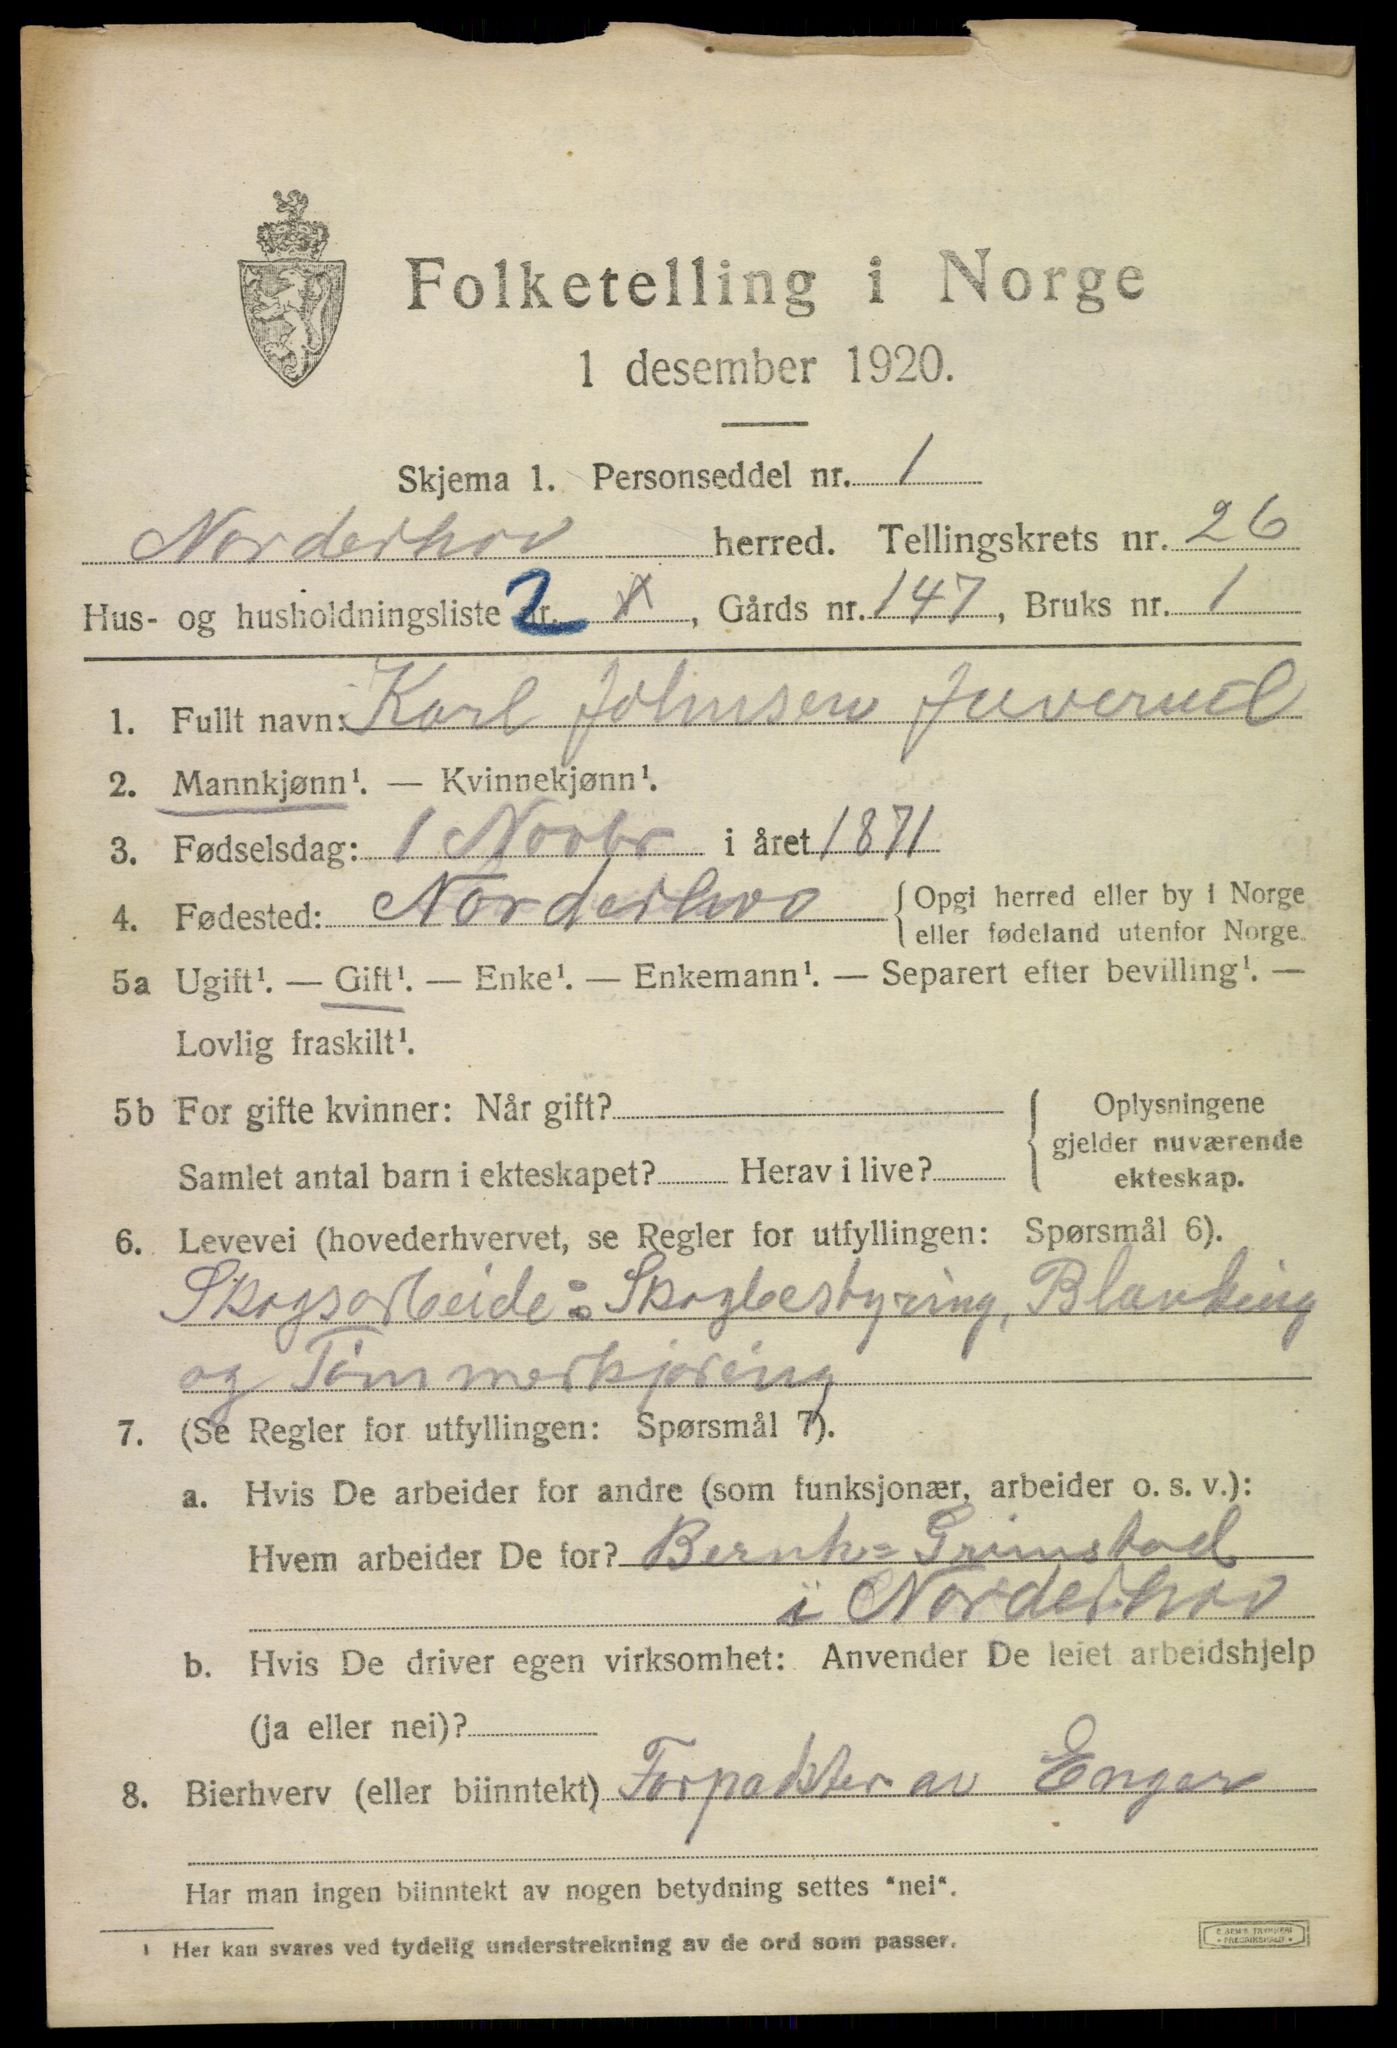 Folketelling i Norge
1 desember 1920.
Skjema 1. Personseddel nr. 1
Norderhov herred. Tellingskrets nr. 26
Hus- og husholdningsliste nr. 2, Gårds nr. 147, Bruks nr. 1
1. Fullt navn: Karl Johnsen
2. Mannkjønn¹. — Kvinnekjønn¹.
3. Fødselsdag: 1 Novbr i året 1871
4. Fødested: Norderhov { Opgi herred eller by i Norge
eller fødeland utenfor Norge.
5a Ugift¹. — Gift¹. — Enke¹. — Enkemann¹. — Separert efter bevilling¹. —
Lovlig fraskilt¹.
5b For gifte kvinner: Når gift? { Oplysningene
gjelder nuværende
Samlet antal barn i ekteskapet? Herav i live? ekteskap.
6. Levevei (hovederhvervet, se Regler for utfyllingen: Spørsmål 6).
Skogsarbeide: Skogbestyring, Blinking
og Tømmerkjøring
7. (Se Regler for utfyllingen: Spørsmål 7).
a. Hvis De arbeider for andre (som funksjonær, arbeider o. s. v.):
Hvem arbeider De for? Bernh= Grimstad
i Norderhov
b. Hvis De driver egen virksomhet: Anvender De leiet arbeidshjelp
(ja eller nei)?
8. Bierhverv (eller biinntekt) Forpakter av Enger
Har man ingen biinntekt av nogen betydning settes "nei".
¹ Her kan svares ved tydelig understrekning av de ord som passer.